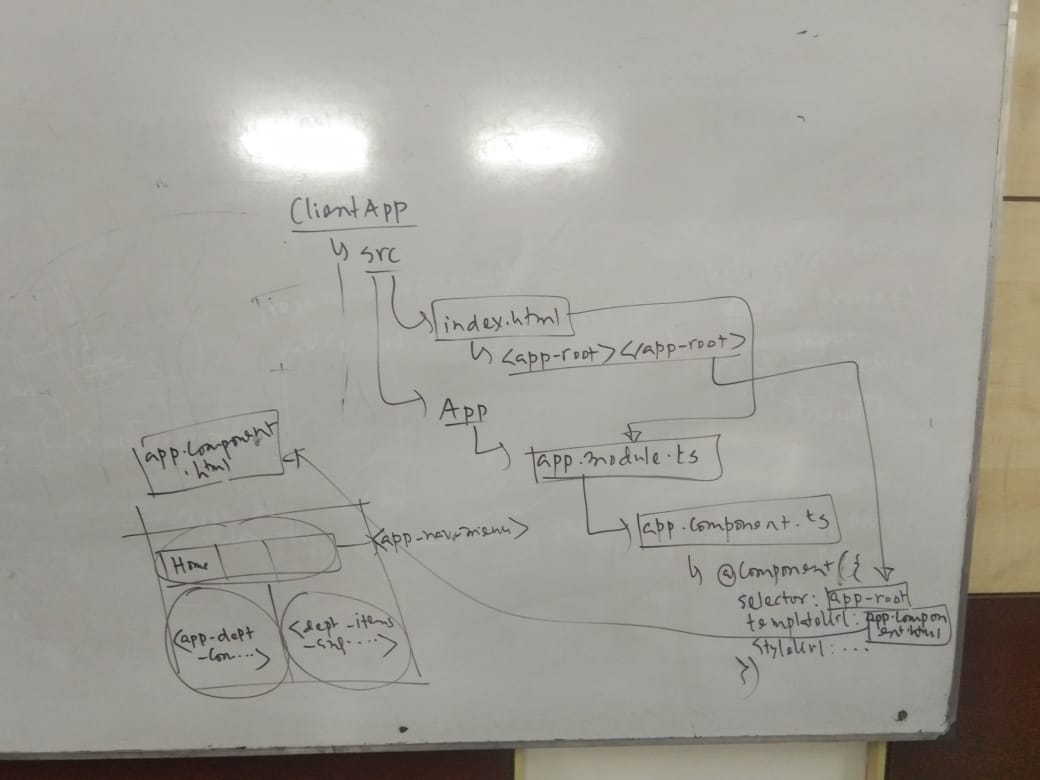 ClientApp
src
index.html
<app-root></app-root>
App
app.module.ts
app.component.ts
@Component({
selector: app-root
templateUrl: app.compon
ent.html
StyleUrl: ....
})
app.component
.html
<app-nav-menu>
Home
<app-dept
-con....>
<dept-items